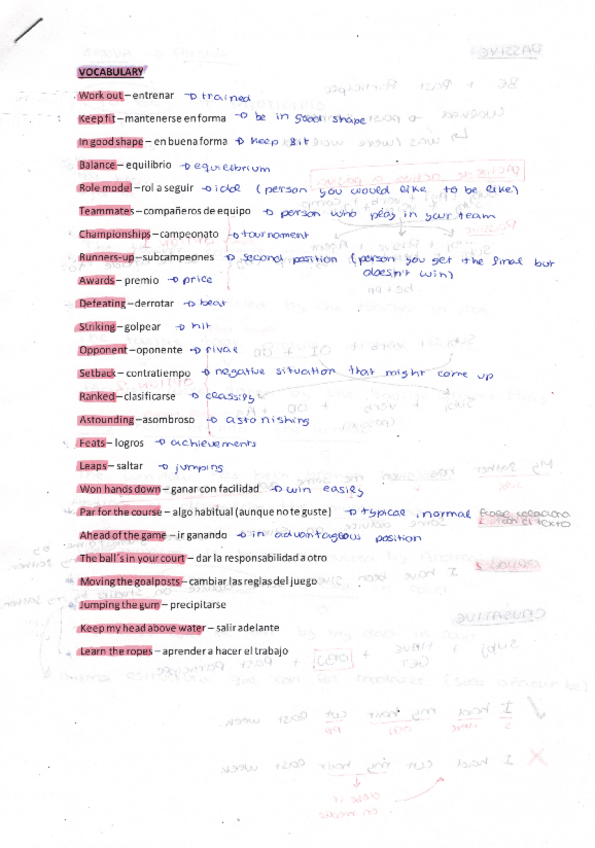 VOCABULARY
Work out – entrenar → trained
Keep fit – mantenerse en forma → be in good shape
In good shape – en buena forma → keep fit
Balance – equilibrio → equilibrium
Role model – rol a seguir → idol (person you would like to be like)
Teammates – compañeros de equipo → person who play in your team
Championships – campeonato → tournament
Runners-up – subcampeones → second position (person you get the final but
doesn't win)
Awards – premio → price
Defeating – derrotar → beat
Striking – golpear → hit
Opponent – oponente → rival
Setback – contratiempo → negative situation that might come up
Ranked – clasificarse → classify
Astounding – asombroso → astonishing
Feats – logros → achievements
Leaps – saltar → jumping
Won hands down – ganar con facilidad → win easily
Par for the course – algo habitual (aunque no te guste) → typical, normal
Ahead of the game – ir ganando → in advantageous position
The ball´s in your court – dar la responsabilidad a otro
Moving the goalposts – cambiar las reglas del juego
Jumping the gum – precipitarse
Keep my head above water – salir adelante
Learn the ropes – aprender a hacer el trabajo